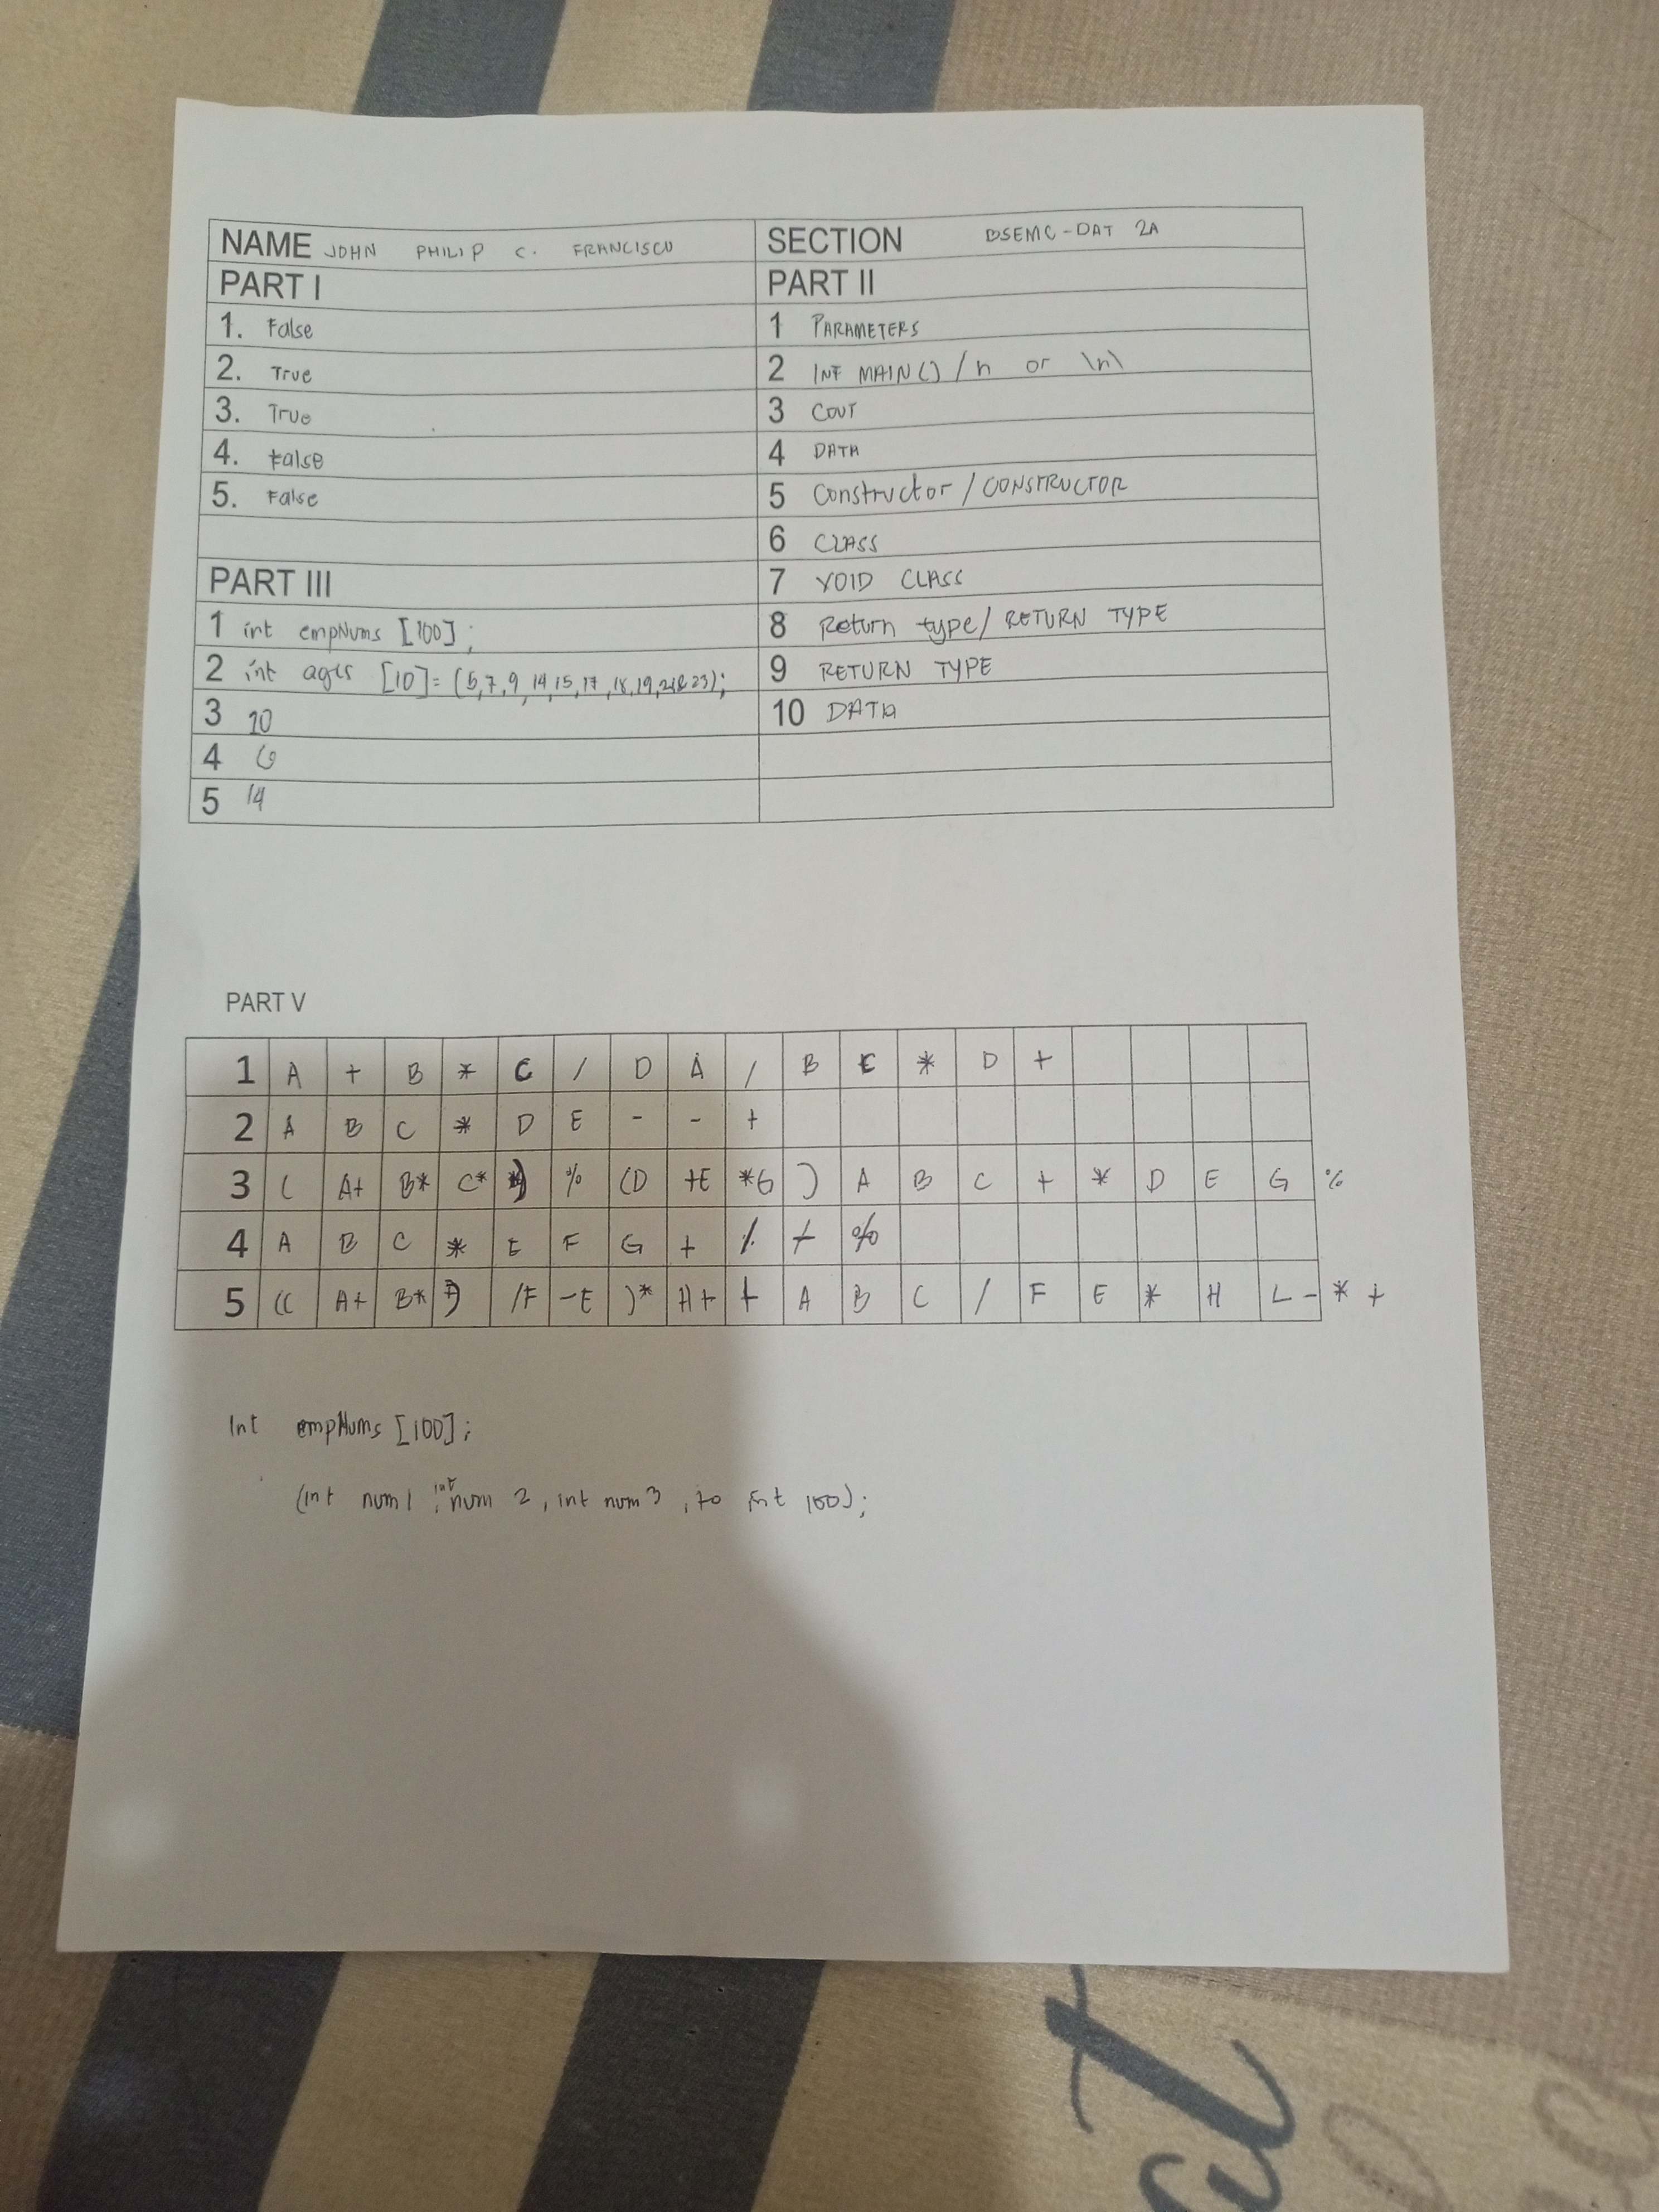 NAME JOHN PHILIP C. FRANCISCO SECTION BSEMC-DAT 2A
PART I PART II
1. False 1 PARAMETERS
2. True 2 INT MAIN() /n or \n\
3. True 3 COUT
4. False 4 DATA
5. False 5 Constructor / CONSTRUCTOR
6 CLASS
PART III 7 VOID CLASS
1 int empNums [100]; 8 Return type/ RETURN TYPE
2 int ages [10]= (5,7,9,14,15,17,18,19,21&23); 9 RETURN TYPE
3 10 10 DATA
4 6
5 14
PART V
1 A + B * C / D A / B C * D +
2 A B C * D E - - +
3 ( A+ B* C* ) % (D +E *G ) A B C + * D E G %
4 A B C * E F G + / + %
5 (( A+ B* ) /F -E )* H+ + A B C / F E * H L - * +
Int empNums [100];
(int num1, int num 2, int num 3, to int 100);